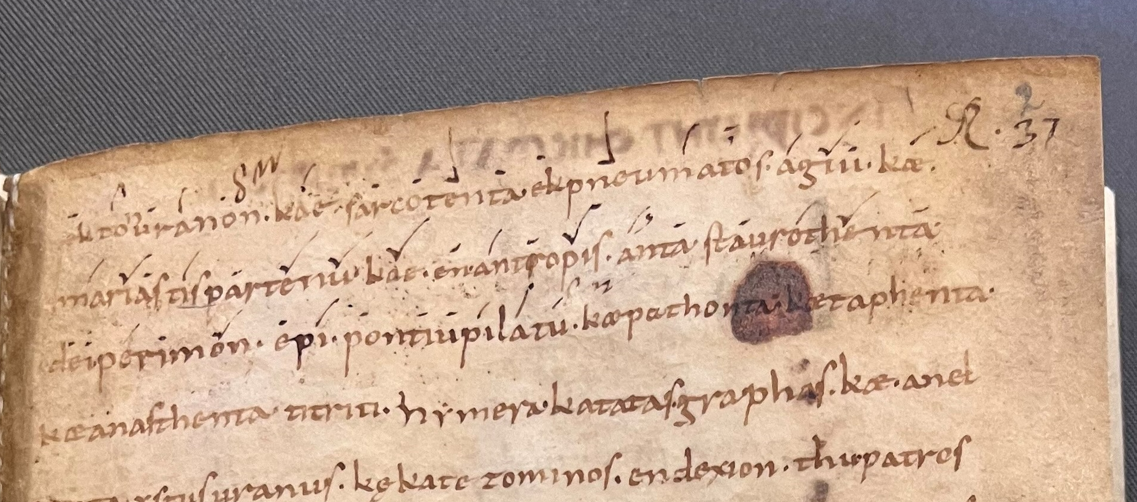 R. 37
ektouranon. kae. sarcotenta. ekpneumatos. agiu. kæ.
mariastisparteniu. kae. enantropis. anta staurothenta
deiperimon. epi. pontiupilatu. kæpathonta. kætaphenta.
kæanasthenta titriti. hymera. katatas. graphas. kæ. anel
uranus. kękate zominos. endexion. thupatros